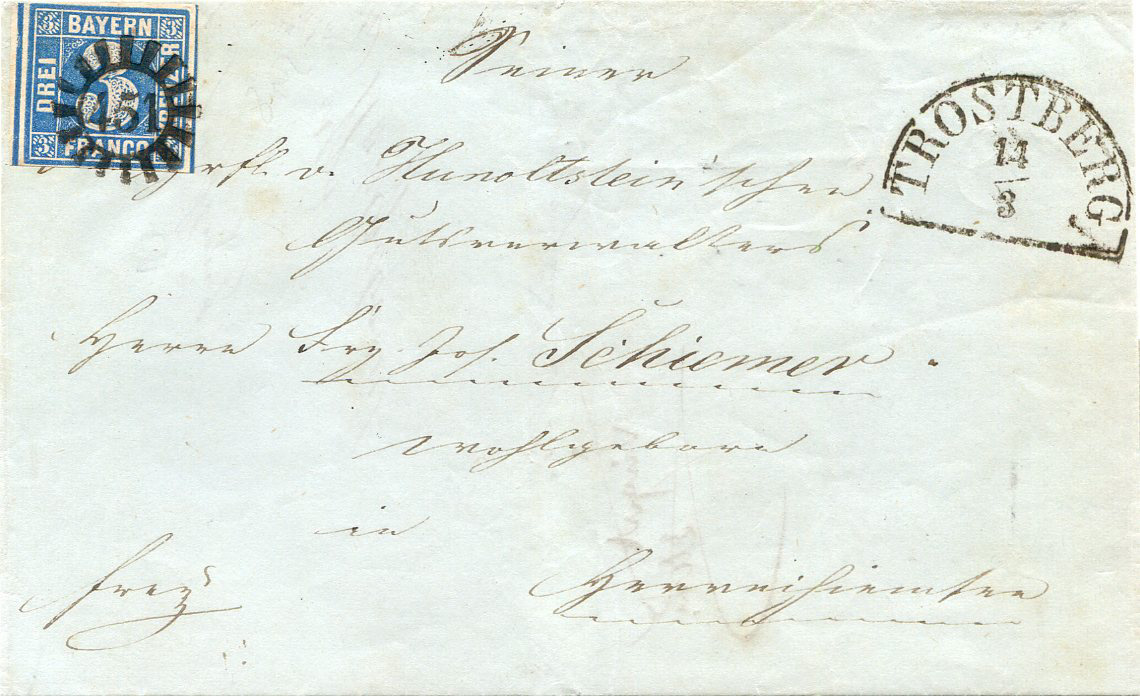 BAYERN
DREI
KREUZER
FRANCO
3
3
3
3
451
TROSTBERG
14
3
Seiner
grfl. v. Hunoltstein'schen
Gutsverwalters
Herrn Frz. Jos. Schiemer.
Wohlgeborn
in
frey
Herrnchiemsee